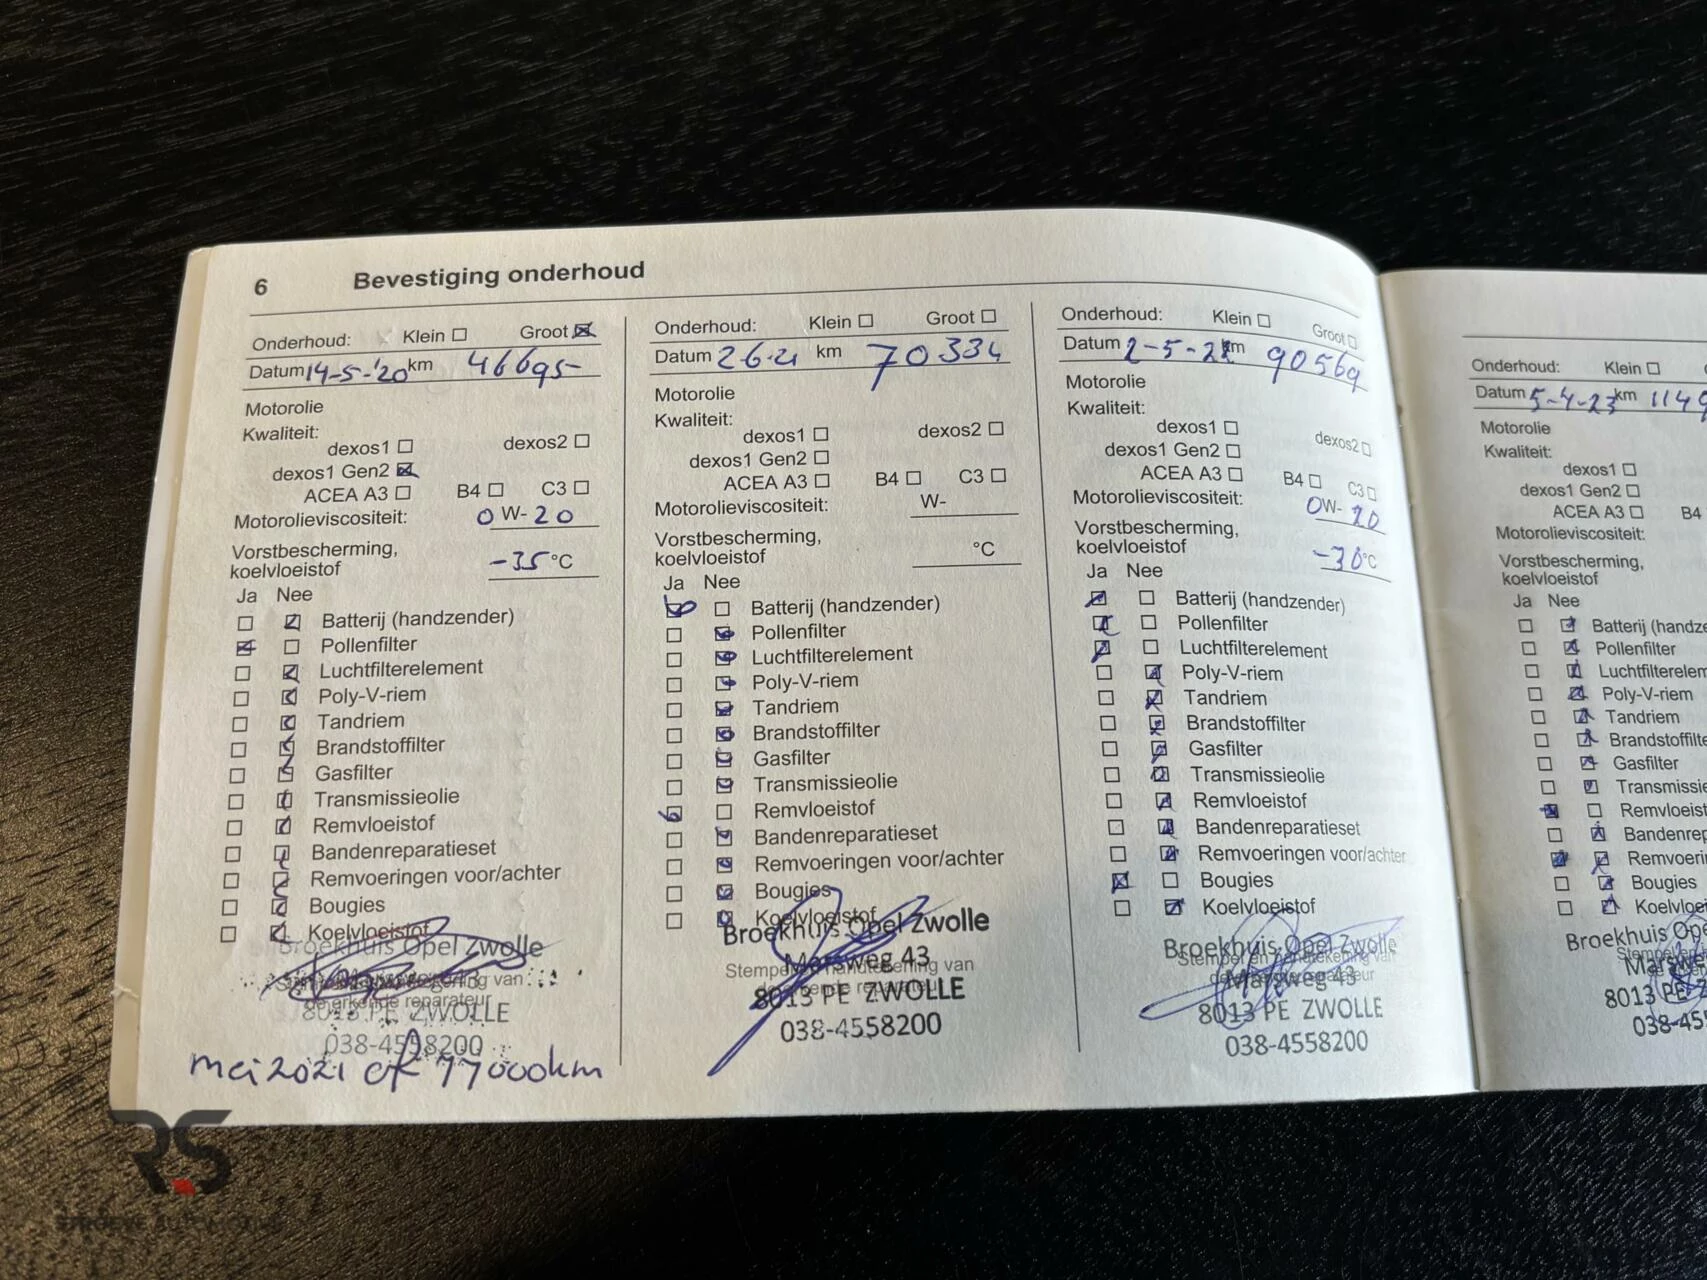 6 Bevestiging onderhoud
Onderhoud: Klein Groot
Datum 14-5-'20 km 46695
Motorolie
Kwaliteit:
dexos1 dexos2
dexos1 Gen2
ACEA A3 B4 C3
Motorolieviscositeit: 0 W- 20
Vorstbescherming,
koelvloeistof -35 °C
Ja Nee
Batterij (handzender)
Pollenfilter
Luchtfilterelement
Poly-V-riem
Tandriem
Brandstoffilter
Gasfilter
Transmissieolie
Remvloeistof
Bandenreparatieset
Remvoeringen voor/achter
Bougies
Koelvloeistof
Broekhuis Opel Zwolle
de erkende reparateur
8013 PE ZWOLLE
038-4558200
mei 2021 of 77000km
Onderhoud: Klein Groot
Datum 2-6-21 km 70334
Motorolie
Kwaliteit:
dexos1 dexos2
dexos1 Gen2
ACEA A3 B4 C3
Motorolieviscositeit: W-
Vorstbescherming,
koelvloeistof °C
Ja Nee
Batterij (handzender)
Pollenfilter
Luchtfilterelement
Poly-V-riem
Tandriem
Brandstoffilter
Gasfilter
Transmissieolie
Remvloeistof
Bandenreparatieset
Remvoeringen voor/achter
Bougies
Koelvloeistof
Broekhuis Opel Zwolle
Marsweg 43
Stempel en handtekening van
8013 PE ZWOLLE
038-4558200
Onderhoud: Klein Groot
Datum 2-5-22 km 90569
Motorolie
Kwaliteit:
dexos1 dexos2
dexos1 Gen2
ACEA A3 B4 C3
Motorolieviscositeit: 0W- 20
Vorstbescherming,
koelvloeistof -30°C
Ja Nee
Batterij (handzender)
Pollenfilter
Luchtfilterelement
Poly-V-riem
Tandriem
Brandstoffilter
Gasfilter
Transmissieolie
Remvloeistof
Bandenreparatieset
Remvoeringen voor/achter
Bougies
Koelvloeistof
Broekhuis Opel Zwolle
Stempel en handtekening van
Marsweg 43
8013 PE ZWOLLE
038-4558200
Onderhoud: Klein
Datum 5-4-23 km 1149
Motorolie
Kwaliteit:
dexos1
dexos1 Gen2
ACEA A3 B4
Motorolieviscositeit:
Vorstbescherming,
koelvloeistof
Ja Nee
Batterij (handze
Pollenfilter
Luchtfilterelemen
Poly-V-riem
Tandriem
Brandstoffilte
Gasfilter
Transmissie
Remvloeist
Bandenrep
Remvoerin
Bougies
Koelvloei
Broekhuis Ope
Marswe
8013 PE Z
038-455
RS
STROEVE AUTOMOTIVE